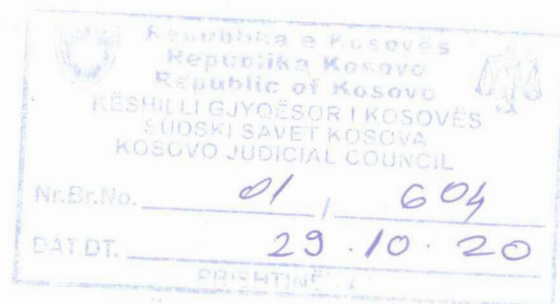 Republika e Kosovës
Republika Kosovo
Republic of Kosovo
KËSHILLI GJYQËSOR I KOSOVËS
SUDSKI SAVET KOSOVA
KOSOVO JUDICIAL COUNCIL
Nr.Br.No. 01 / 604
DAT.DT. 29.10.20
PRISHTINË